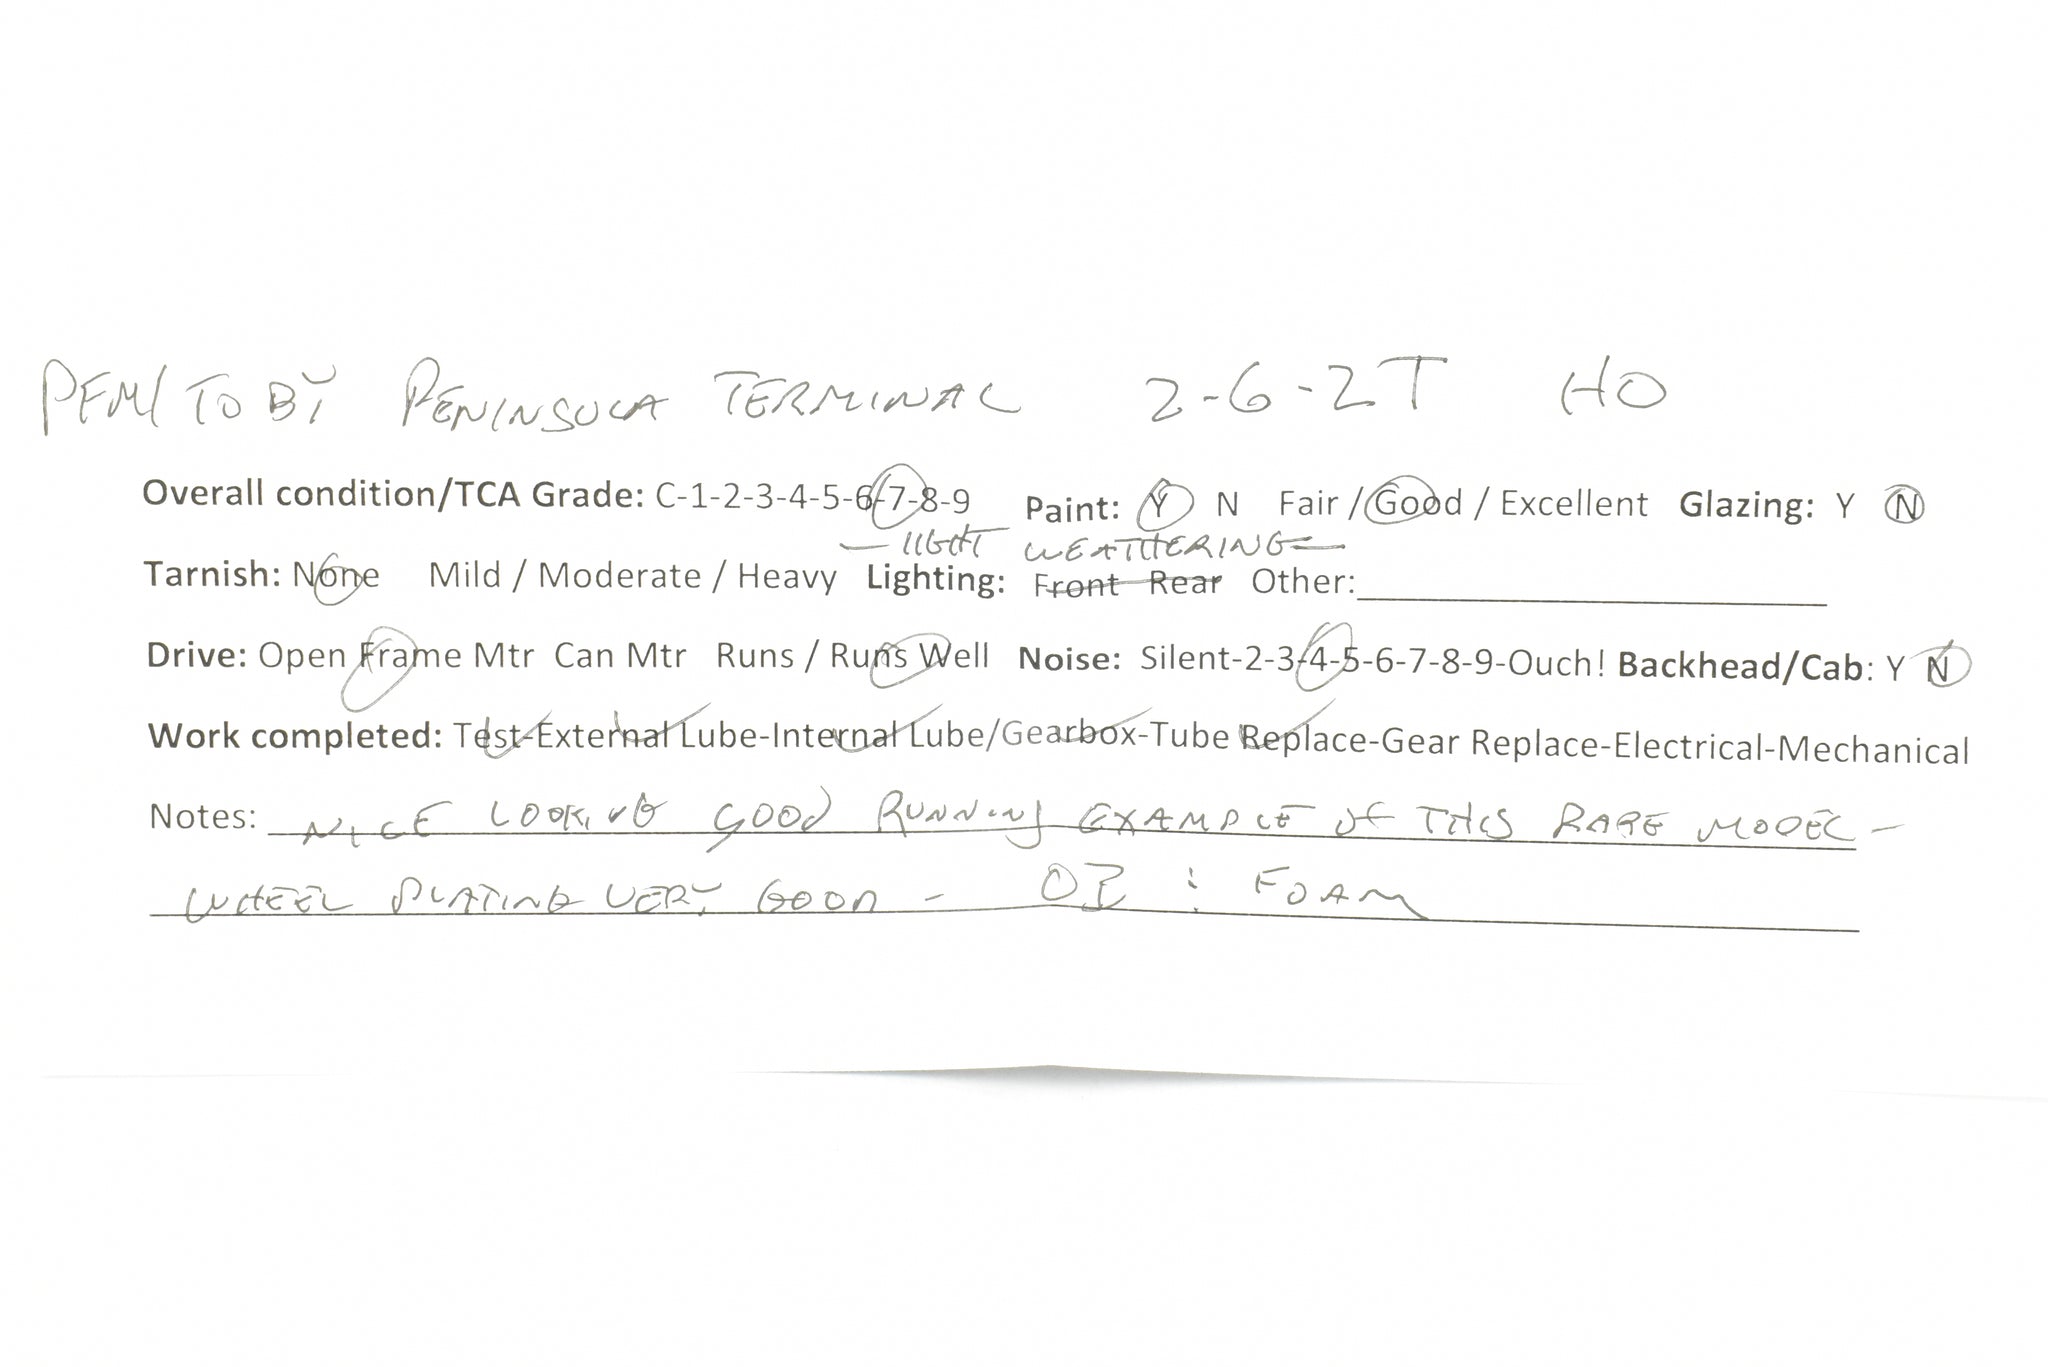 PFM/TOBY PENINSULA TERMINAL 2-6-2T HO
Overall condition/TCA Grade: C-1-2-3-4-5-6-7-8-9 Paint: Y N Fair / Good / Excellent Glazing: Y N
— LIGHT WEATHERING —
Tarnish: None Mild / Moderate / Heavy Lighting: Front Rear Other:
Drive: Open Frame Mtr Can Mtr Runs / Runs Well Noise: Silent-2-3-4-5-6-7-8-9-Ouch! Backhead/Cab: Y N
Work completed: Test-External Lube-Internal Lube/Gearbox-Tube Replace-Gear Replace-Electrical-Mechanical
Notes: NICE LOOKING GOOD RUNNING EXAMPLE OF THIS RARE MODEL -
WHEEL PLATING VERY GOOD - : FOAM